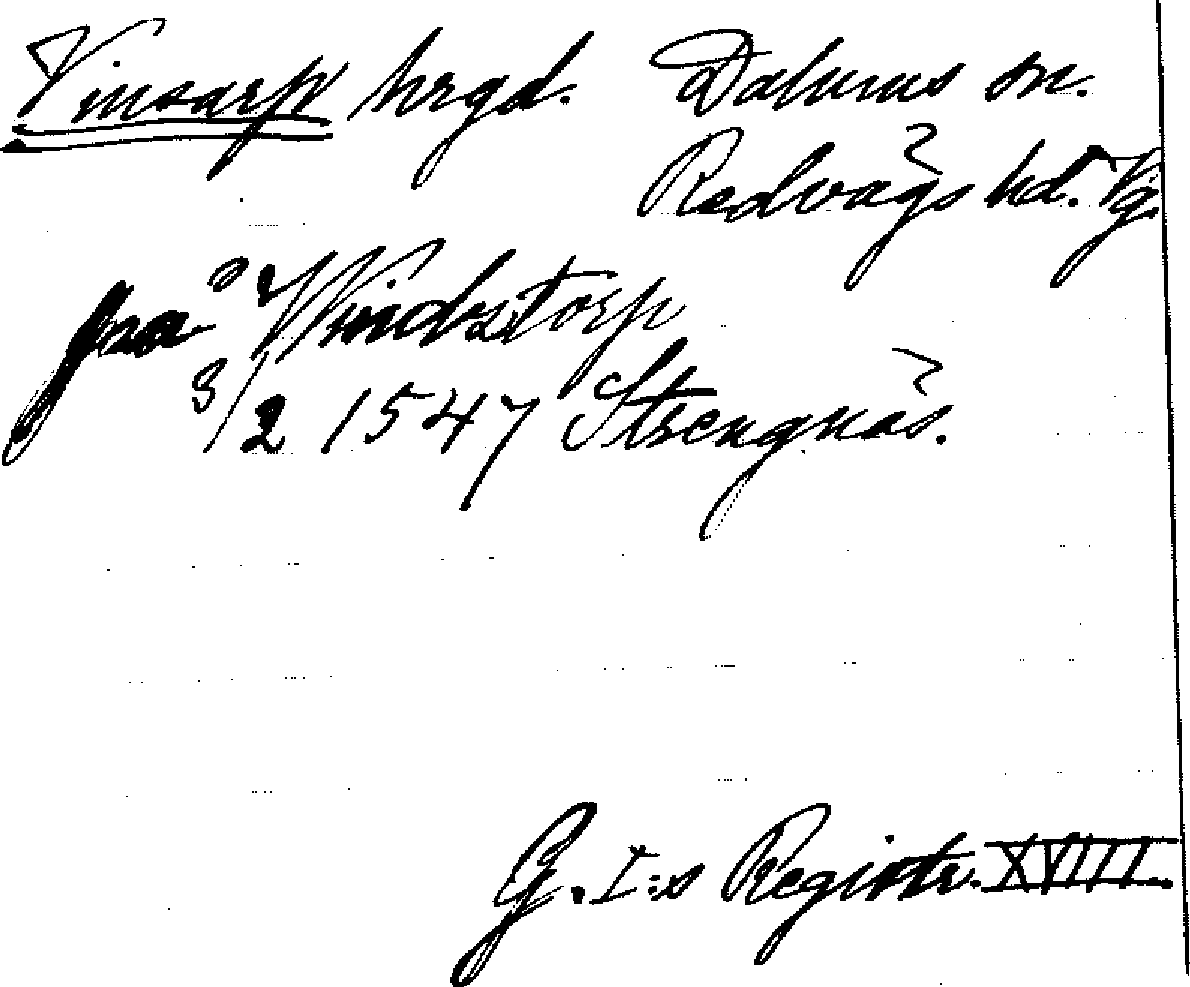 Vinsarp hrgd. Dalums sn.
Redvägs hd. Vg.
pra Vindstorp
3/2 1547 Strengnäs.
G. I:s Registr. XVIII.